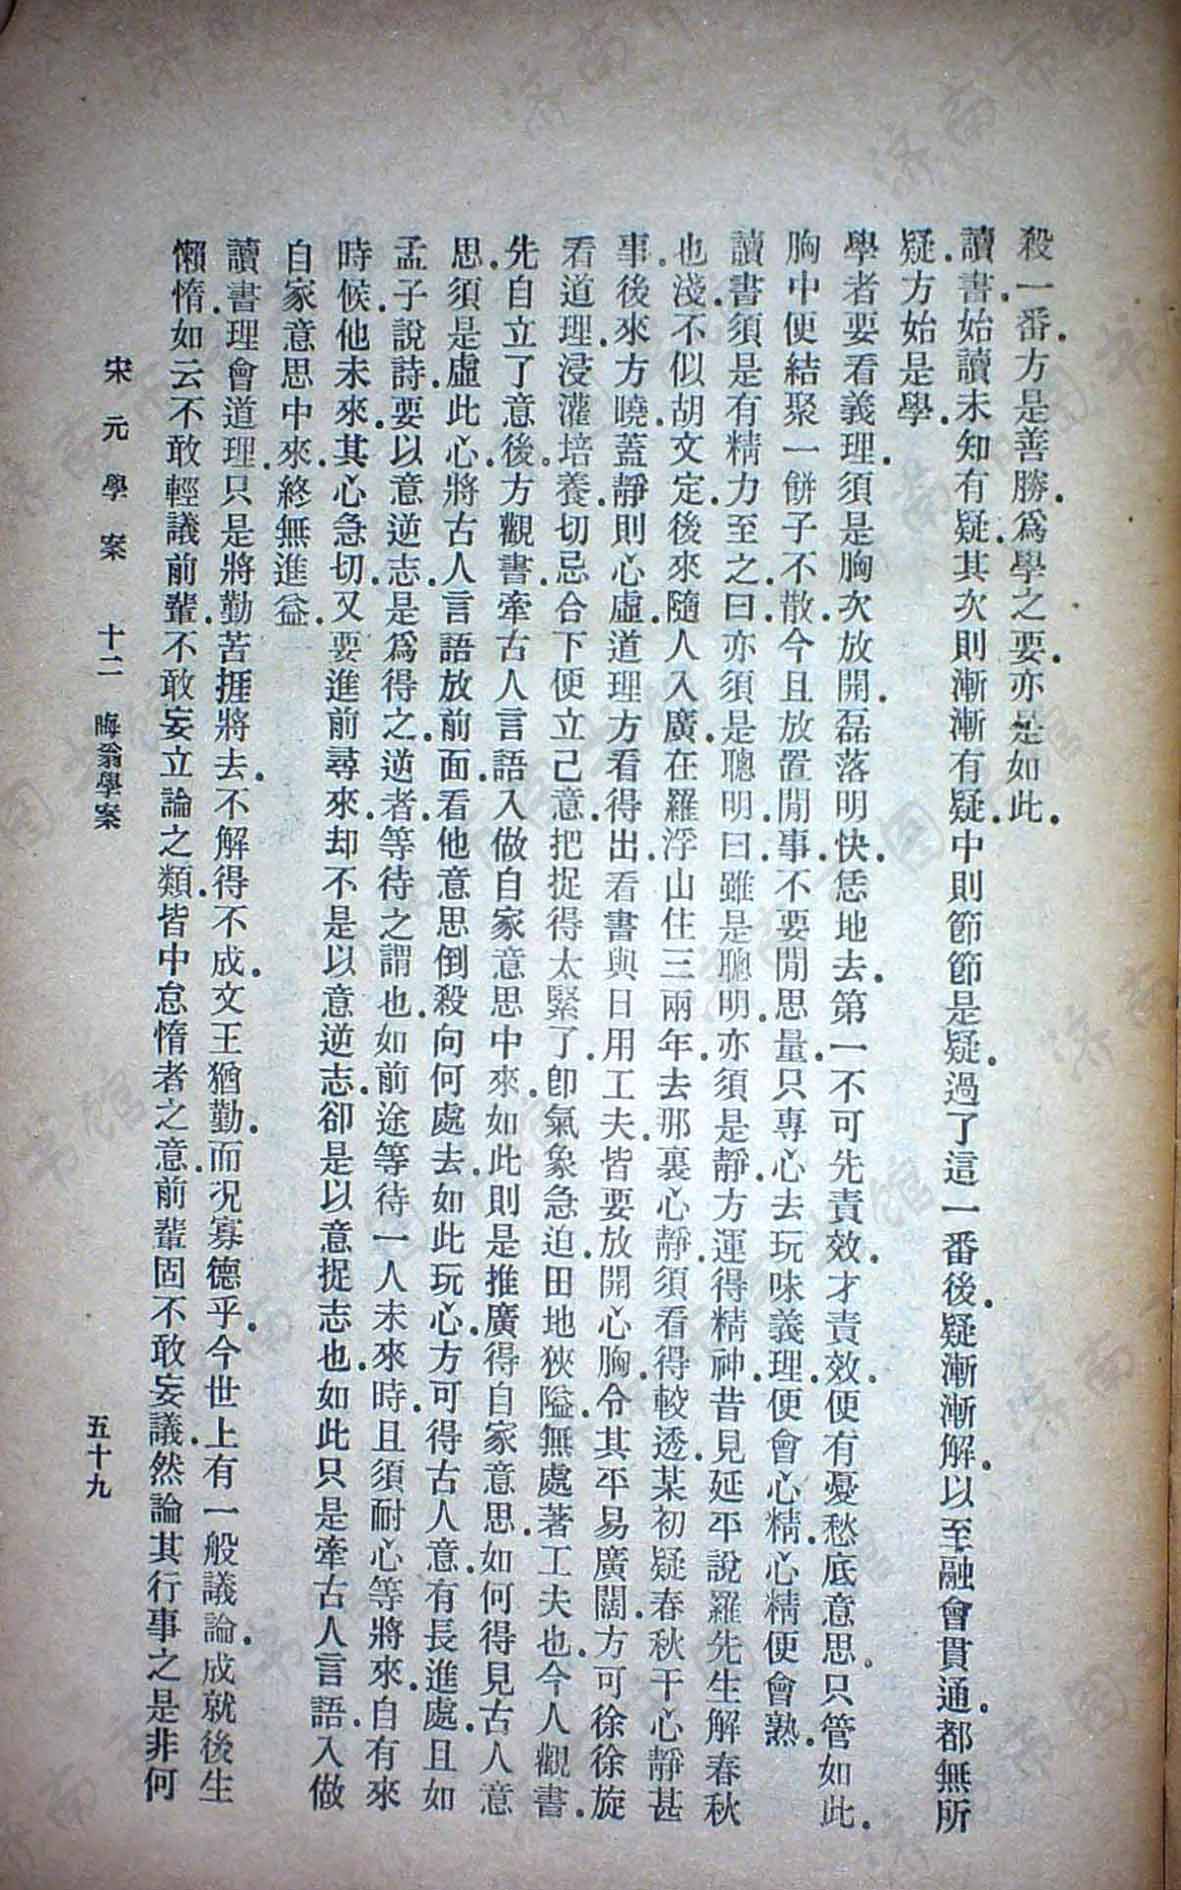 殺一番.方是善勝.爲學之要.亦是如此.
讀書.始讀未知有疑.其次則漸漸有疑.中則節節是疑.過了這一番後.疑漸漸解.以至融會貫通.都無所
疑.方始是學.
學者要看義理.須是胸次放開.磊落明快.恁地去.第一不可先責效.才責效.便有憂愁底意思.只管如此.
胸中便結聚一餅子不散.今且放置閒事.不要閒思量.只專心去玩味義理.便會心精.心精便會熟.
讀書須是有精力.至之曰.亦須是聰明.曰.雖是聰明.亦須是靜.方運得精神.昔見延平說羅先生解春秋
也淺.不似胡文定.後來隨人入廣.在羅浮山住三兩年.去那裏心靜.須看得較透.某初疑春秋干心靜甚
事.後來方曉.蓋靜則心虛.道理方看得出.看書與日用工夫.皆要放開心胸.令其平易廣闊.方可徐徐旋
看道理.浸灌培養.切忌合下便立己意.把捉得太緊了.卽氣象急迫.田地狹隘.無處著工夫也.今人觀書.
先自立了意.後方觀書.牽古人言語.入做自家意思中來.如此則是推廣得自家意思.如何得見古人意
思.須是虛此心.將古人言語放前面.看他意思倒殺向何處去.如此玩心.方可得古人意.有長進處.且如
孟子說詩.要以意逆志.是爲得之.逆者.等待之謂也.如前途等待一人.未來時.且須耐心等將來.自有來
時候.他未來.其心急切.又要進前尋來.却不是以意逆志.卻是以意捉志也.如此.只是牽古人言語.入做
自家意思中來.終無進益.
讀書理會道理.只是將勤苦捱將去.不解得不成.文王猶勤.而況寡德乎.今世上有一般議論.成就後生
懶惰.如云不敢輕議前輩.不敢妄立論之類.皆中怠惰者之意.前輩固不敢妄議.然論其行事之是非何
宋元學案 十二 晦翁學案 五十九